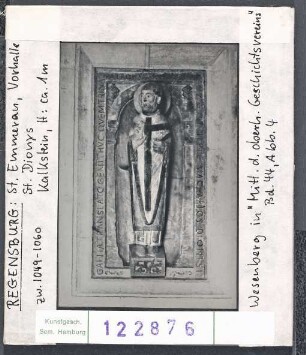 REGENSBURG: St. Emmeram, Vorhalle
St. Dionys
Kalkstein, H: ca. 1m
zw. 1049-1060
Wesenberg in "Mitt. d. oberh. Geschichtsvereins"
Bd. 44, Abb. 4
Kunstgesch.
Sem. Hamburg
122876